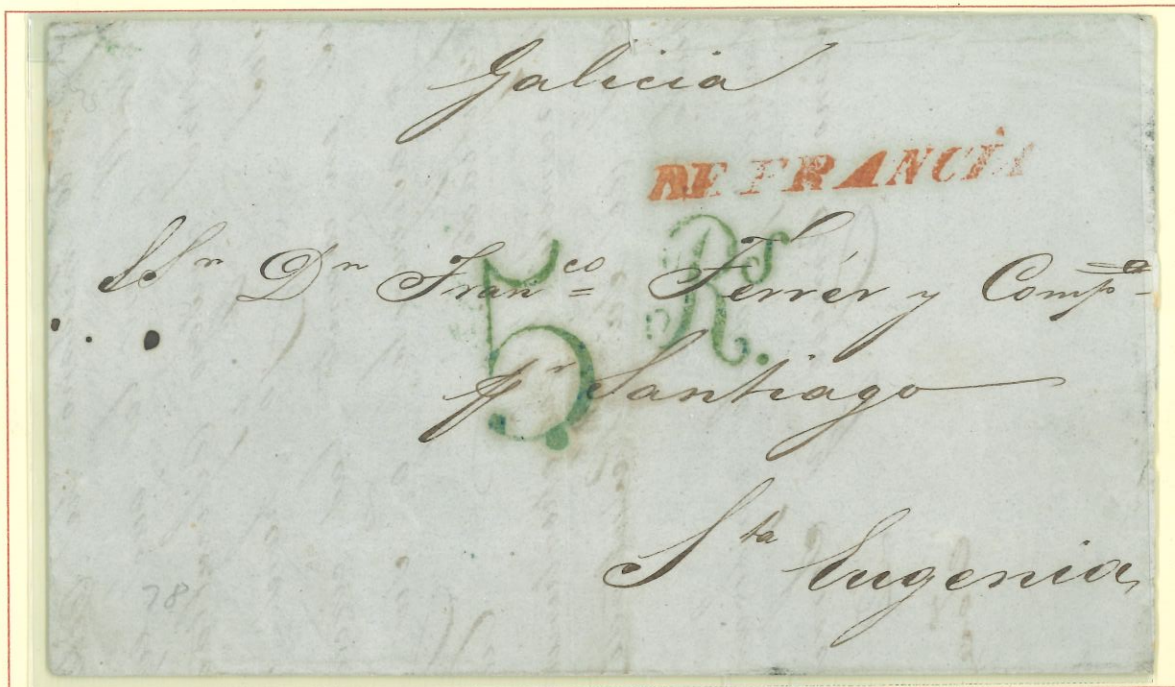 Galicia
DE FRANCIA
5 Rs.
SSn Dn Franco Ferrér y Compa
pr Santiago
Sta Eugenia
78